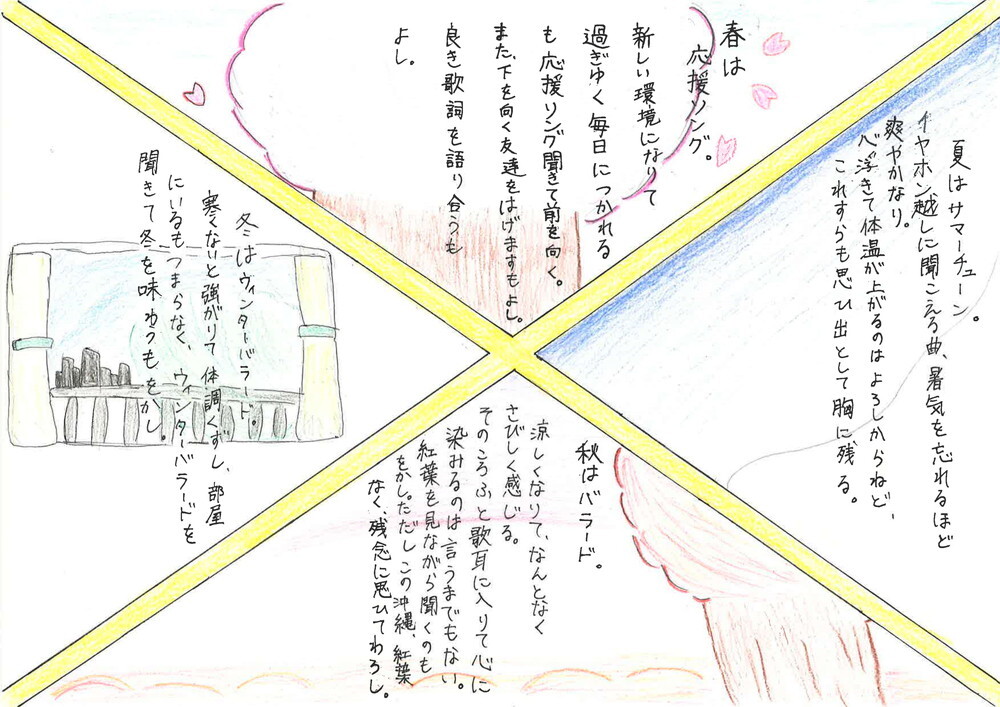 春は
応援ソング。
新しい環境になりて
過ぎゆく毎日につかれる
も応援ソング聞きて前を向く。
また、下を向く友達をはげますもよし。
良き歌詞を語り合うも
よし。
夏はサマーチューン。
イヤホン越しに聞こえる曲、暑気を忘れるほど
爽やかなり。
心浮きて体温が上がるのはよろしからねど、
これすらも思ひ出として胸に残る。
秋はバラード。
涼しくなりて、なんとなく
さびしく感じる。
そのころふと歌耳に入りて心に
染みるのは言うまでもない。
紅葉を見ながら聞くのも
をかし。ただし、この沖縄、紅葉
なく、残念に思ひてわろし。
冬はウィンターバラード。
寒くないと強がりて体調くずし、部屋
にいるもつまらなく、ウィンターバラードを
聞きて冬を味わうもをかし。